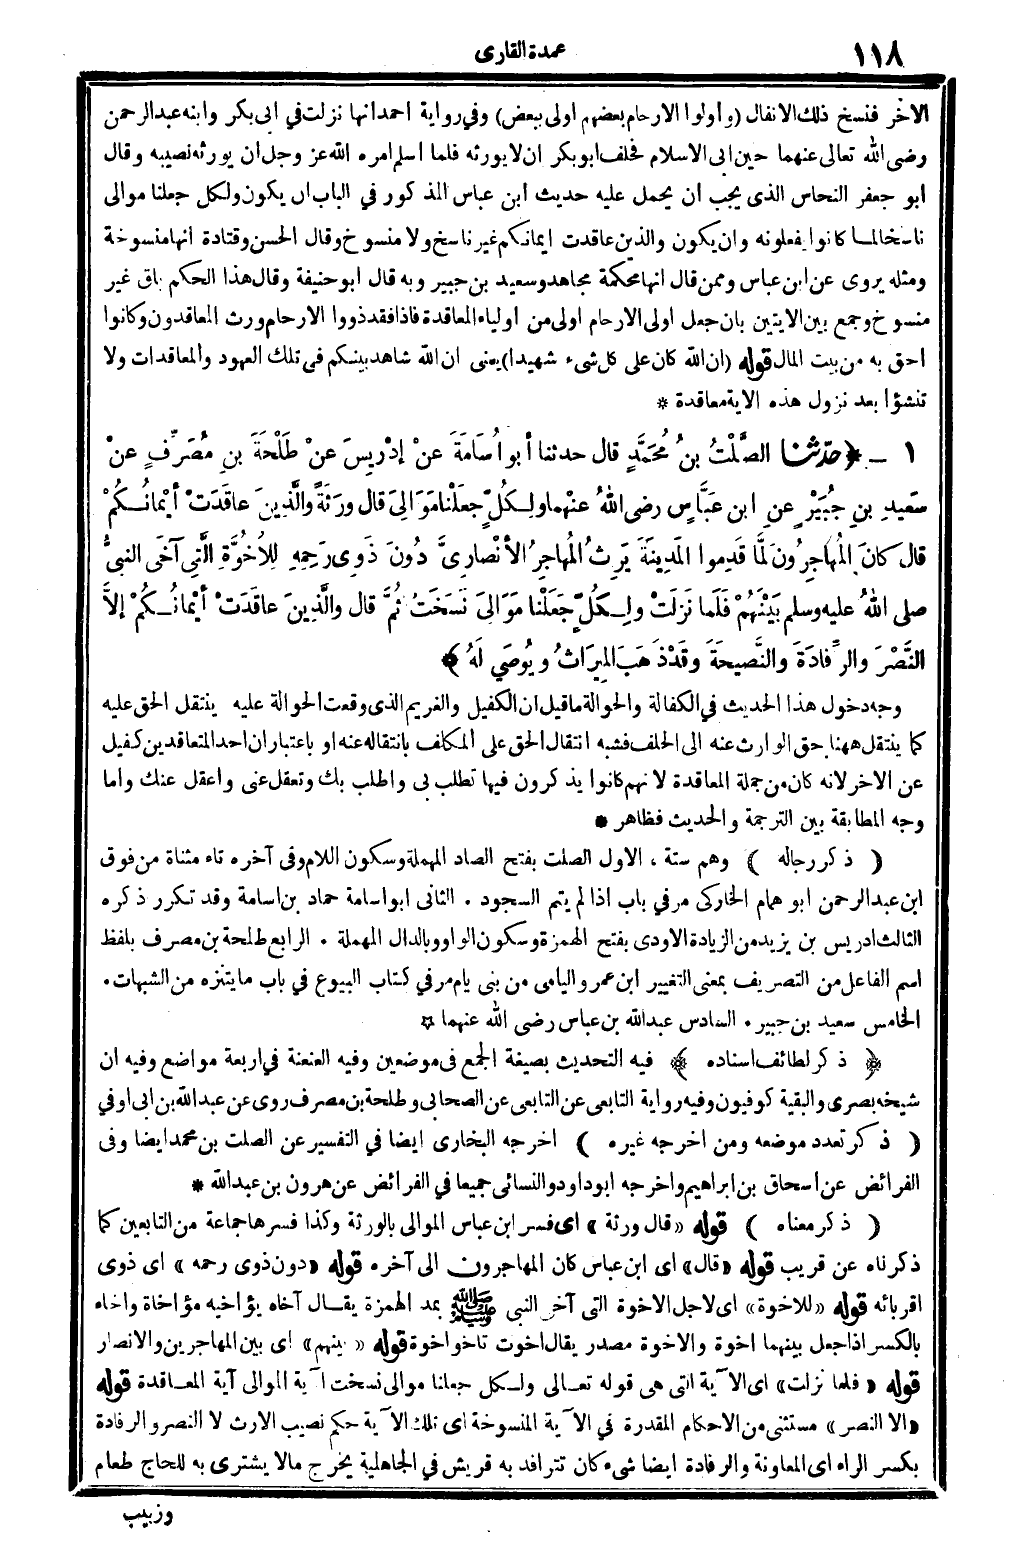 ١١٨
عمدة القارى
الآخر فنسخ ذلك الانفال (وأولوا الارحام بعضهم اولى ببعض) وفي رواية احمد انها نزلت في ابى بكر وابنه عبد الرحمن
رضى الله تعالى عنهما حين ابى الاسلام فحلف ابو بكر ان لا يورثه فلما اسلم امره الله عز وجل ان يورثه نصيبه وقال
ابو جعفر النحاس الذى يجب ان يحمل عليه حديث ابن عباس المذكور في الباب ان يكون ولكل جعلنا موالى
ناسخا لما كانوا يفعلونه وان يكون والذين عاقدت ايمانكم غير ناسخ ولا منسوخ وقال الحسن وقتادة انها منسوخة
ومثله يروى عن ابن عباس وممن قال انها محكمة مجاهد وسعيد بن جبير وبه قال ابو حنيفة وقال هذا الحكم باق غير
منسوخ وجمع بين الايتين بان جعل اولى الارحام اولى من اولياء المعاقدة فاذا فقد ذووا الارحام ورث المعاقدون وكانوا
احق به من بيت المال قوله (ان الله كان على كل شىء شهيدا) يعنى ان الله شاهد بينكم فى تلك العهود والمعاقدات ولا
تنشؤا بعد نزول هذه الاية معاقدة *
١ ـ ﴿ حدثنا الصَّلْتُ بنُ مُحَمَّدٍ قال حدثنا أبو أُسَامَةَ عنْ إدْرِيسَ عنْ طَلْحَةَ بنِ مُصَرِّفٍ عنْ
سَعيدِ بنِ جُبَيْرٍ عنِ ابنِ عَبَّاسٍ رضى اللهُ عنْهما ولِكُلٍّ جعَلْنا مَوَالِىَ قال ورَثَةً والَّذِينَ عاقَدَتْ أيْمانُكُمْ
قال كانَ المُهاجِرُونَ لمَّا قَدِموا المَدِينَةَ يَرِثُ المُهاجِرُ الأنْصارِىَّ دُونَ ذَوِى رَحِمِهِ لِلأخُوَّةِ الَّتِى آخَى النبىُّ
صلى اللهُ عليه وسلم بَيْنَهُمْ فَلَما نزَلَتْ ولِكُلٍّ جَعَلْنا مَوَالِىَ نَسَخَتْ ثُمَّ قال والَّذِينَ عاقَدَتْ أيْمانُكُمْ إلاَّ
النَّصْرَ والرِّفادَةَ والنَّصِيحَةَ وقَدْ ذَهَبَ المِيرَاثُ ويُوصَي لَهُ ﴾
وجه دخول هذا الحديث في الكفالة والحوالة ما قيل ان الكفيل والغريم الذى وقعت الحوالة عليه ينتقل الحق عليه
كما ينتقل ههنا حق الوارث عنه الى الحلف فشبه انتقال الحق على المكلف بانتقاله عنه او باعتبار ان احد المتعاقدين كفيل
عن الاخر لانه كان من جملة المعاقدة لانهم كانوا يذكرون فيها تطلب بى واطلب بك وتعقل عنى واعقل عنك واما
وجه المطابقة بين الترجمة والحديث فظاهر *
﴿ ذكر رجاله ﴾ وهم ستة ، الاول الصلت بفتح الصاد المهملة وسكون اللام وفى آخره تاء مثناة من فوق
ابن عبد الرحمن ابو همام الخاركى مر في باب اذا لم يتم السجود . الثانى ابو اسامة حماد بن اسامة وقد تكرر ذكره
الثالث ادريس بن يزيد من الزيادة الاودى بفتح الهمزة وسكون الواو وبالدال المهملة . الرابع طلحة بن مصرف بلفظ
اسم الفاعل من التصريف بمعنى التغيير ابن عمرو اليامى من بنى يام مر في كتاب البيوع في باب ما يتنزه من الشبهات .
الخامس سعيد بن جبير . السادس عبدالله بن عباس رضى الله عنهما *
﴿ ذكر لطائف اسناده ﴾ فيه التحديث بصيغة الجمع فى موضعين وفيه العنعنة في اربعة مواضع وفيه ان
شيخه بصرى والبقية كوفيون وفيه رواية التابعى عن التابعى عن الصحابى وطلحة بن مصرف روى عن عبد الله بن ابى اوفي
﴿ ذكر تعدد موضعه ومن اخرجه غيره ﴾ اخرجه البخارى ايضا في التفسير عن الصلت بن محمد ايضا وفى
الفرائض عن اسحاق بن ابراهيم واخرجه ابو داود والنسائى جميعا في الفرائض عن هرون بن عبدالله *
﴿ ذكر معناه ﴾ قوله «قال ورثة» اى فسر ابن عباس الموالى بالورثة وكذا فسرها جماعة من التابعين كما
ذكرناه عن قريب قوله «قال» اى ابن عباس كان المهاجرون الى آخره قوله «دون ذوى رحمه» اى ذوى
اقربائه قوله «للاخوة» اى لاجل الاخوة التى آخى النبى ﷺ بمد الهمزة يقال آخاه يؤاخيه مؤاخاة واخاء
بالكسر اذا جعل بينهما اخوة والاخوة مصدر يقال اخوت تاخو اخوة قوله «بينهم» اى بين المهاجرين والانصار
قوله «فلما نزلت» اى الآية التى هى قوله تعالى ولكل جعلنا موالى نسخت آية الموالى آية المعاقدة قوله
«الا النصر» مستثنى من الاحكام المقدرة في الآية المنسوخة اى تلك الآية حكم نصيب الارث لا النصر والرفادة
بكسر الراء اى المعاونة والرفادة ايضا شىء كان تترافد به قريش في الجاهلية يخرج مالا يشترى به للحاج طعام
وزبيب